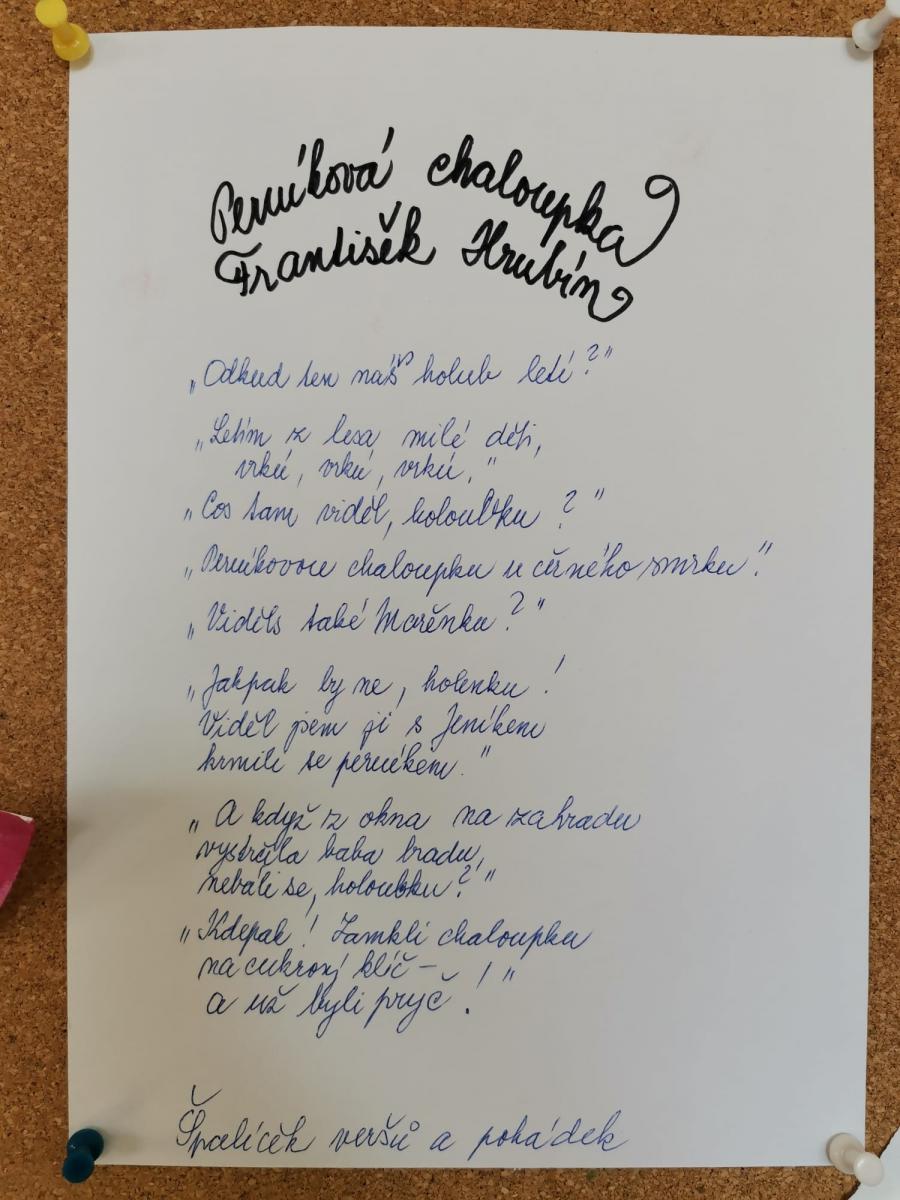 Perníková chaloupka
František Hrubín
„Odkud ten náš holub letí?"
„Letím z lesa milé děti,
vrkú, vrkú, vrkú,"
„Cos tam viděl, holoubku?"
„Perníkovou chaloupku u černého smrku!"
„Viděls také Mařenku?"
„Jakpak by ne, holenku!
Viděl jsem ji s Jeníkem
krmili se perníkem."
„A když z okna na zahradu
vystrčila baba bradu,
nebáli se, holoubku?"
„Kdepak! Zamkli chaloupku
na cukrový klíč –
a už byli pryč!"
Špalíček veršů a pohádek